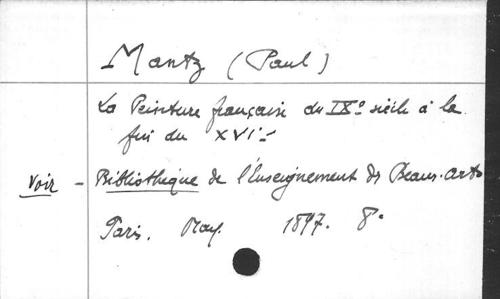 Mantz (Paul)
La Peinture française du IXe siècle à la
fin du XVIe
Voir - Bibliothèque de l'Enseignement des Beaux-arts
Paris. May. 1897. 8°